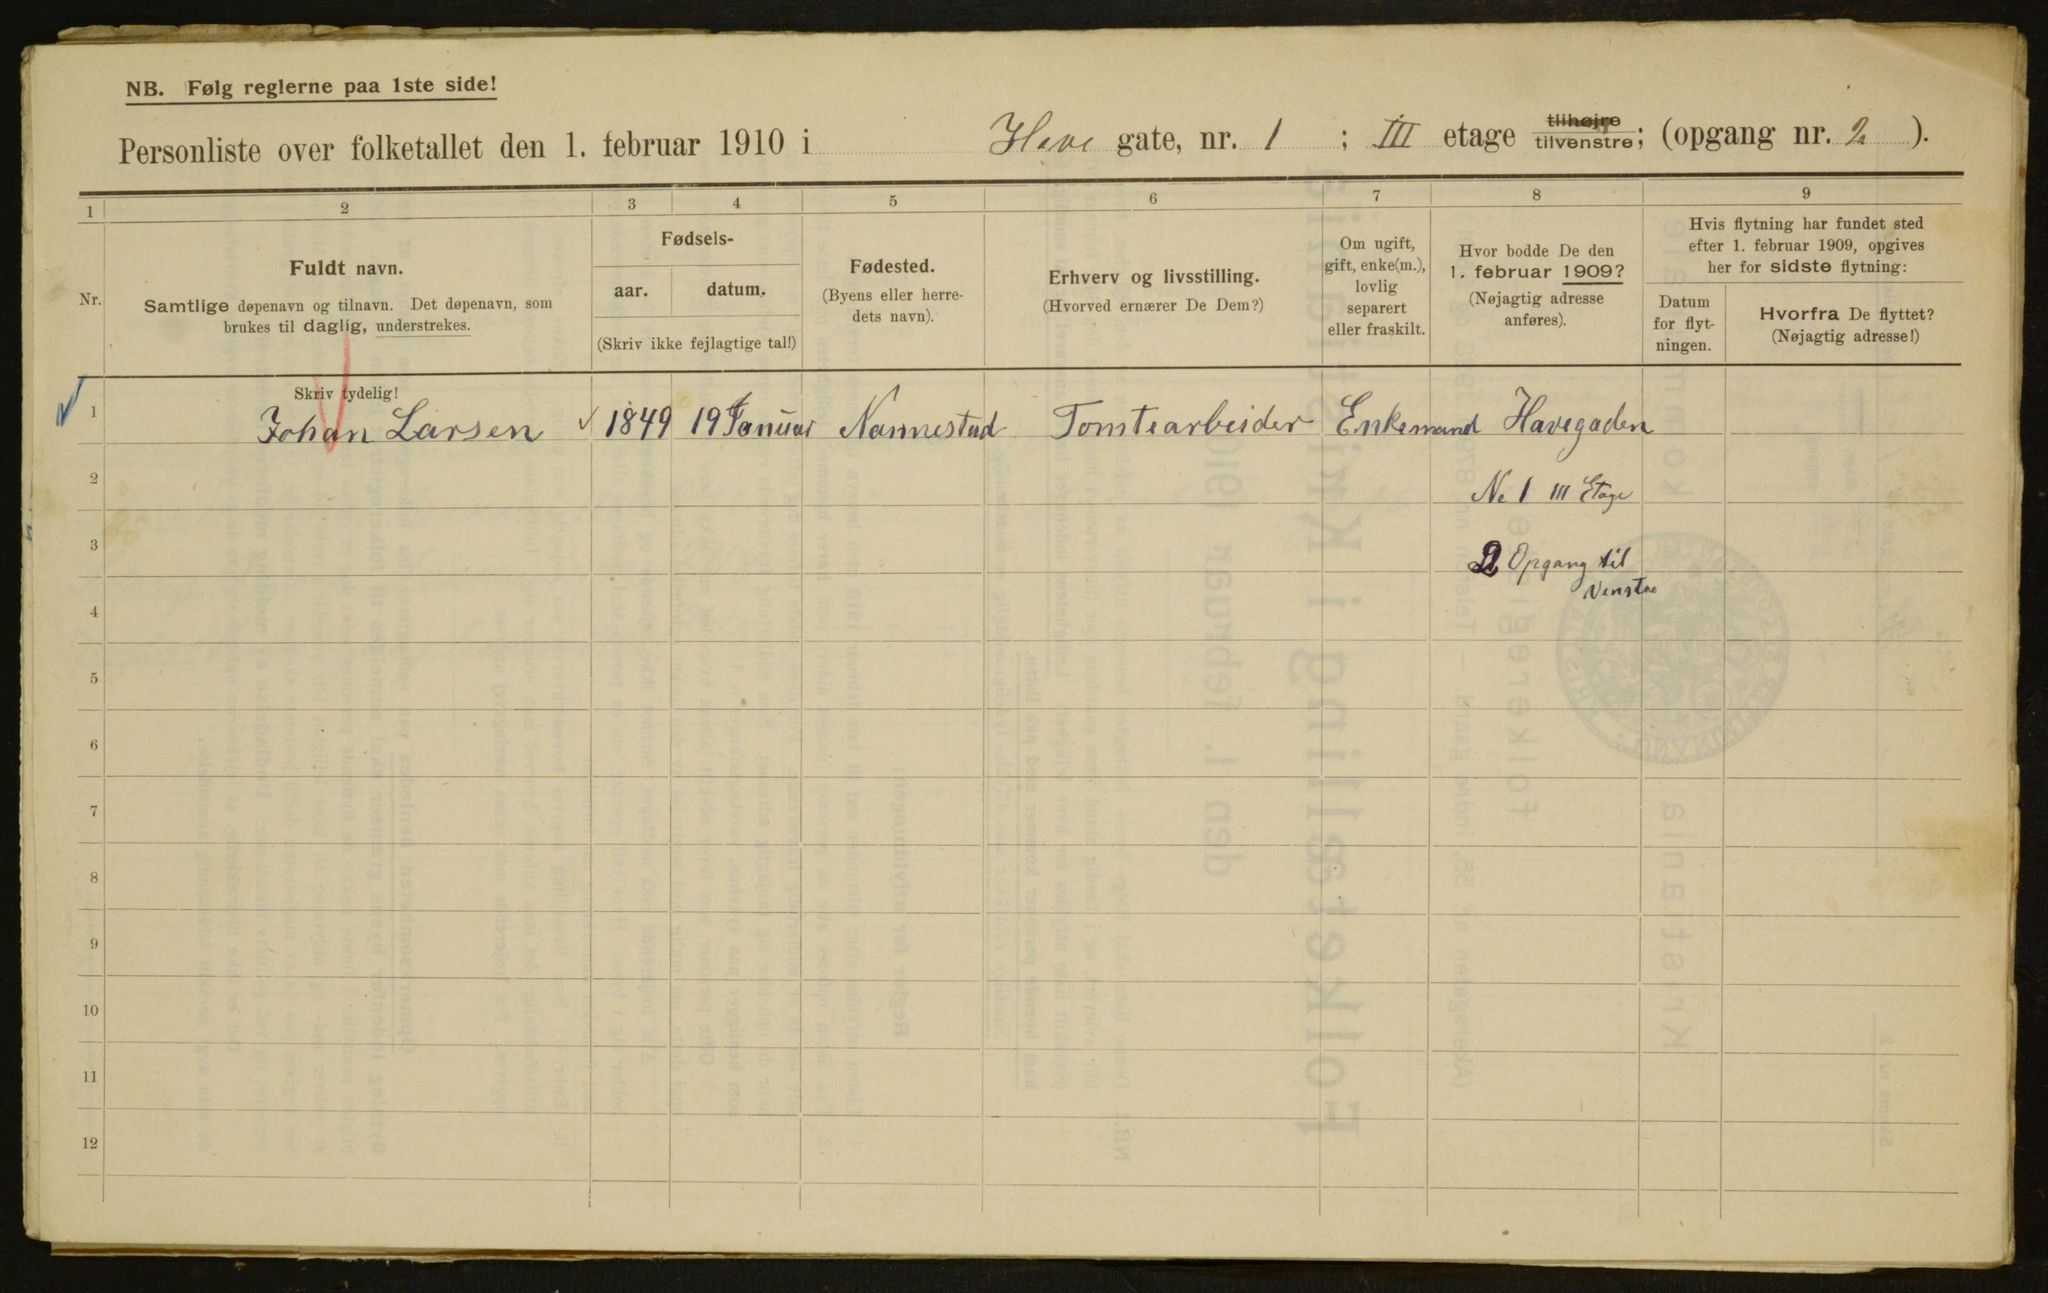 NB. Følg reglerne paa 1ste side!
Personliste over folketallet den 1. februar 1910 i Have gate, nr. 1 ; III etage tilhøjre tilvenstre; (opgang nr. 2 ).
1 2 3 4 5 6 7 8 9
Nr.
Fuldt navn.
Samtlige døpenavn og tilnavn. Det døpenavn, som
brukes til daglig, understrekes.
Fødsels-
aar. datum.
(Skriv ikke fejlagtige tal!)
Fødested.
(Byens eller herre-
dets navn).
Erhverv og livsstilling.
(Hvorved ernærer De Dem?)
Om ugift,
gift, enke(m.),
lovlig
separert
eller fraskilt.
Hvor bodde De den
1. februar 1909?
(Nøjagtig adresse
anføres).
Hvis flytning har fundet sted
efter 1. februar 1909, opgives
her for sidste flytning:
Datum
for flyt-
ningen.
Hvorfra De flyttet?
(Nøjagtig adresse!)
Skriv tydelig!
1 Johan Larsen 1849 19 Januar Nannestad Tomtearbeider Enkemand Havegaden
2 No 1 III Etage
3 2 Opgang til
Venstre
4
5
6
7
8
9
10
11
12